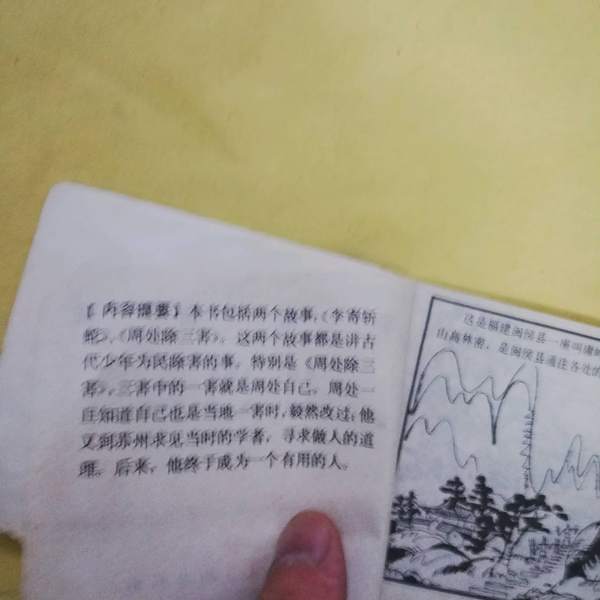 【内容提要】本书包括两个故事,《李寄斩
蛇》、《周处除三害》。这两个故事都是讲古
代少年为民除害的事。特别是《周处除三
害》,三害中的一害就是周处自己。周处一
旦知道自己也是当地一害时,毅然改过;他
又到苏州求见当时的学者,寻求做人的道
理。后来,他终于成为一个有用的人。
这是福建闽侯县一座叫庸岭
山高林密,是闽侯县通往各处的